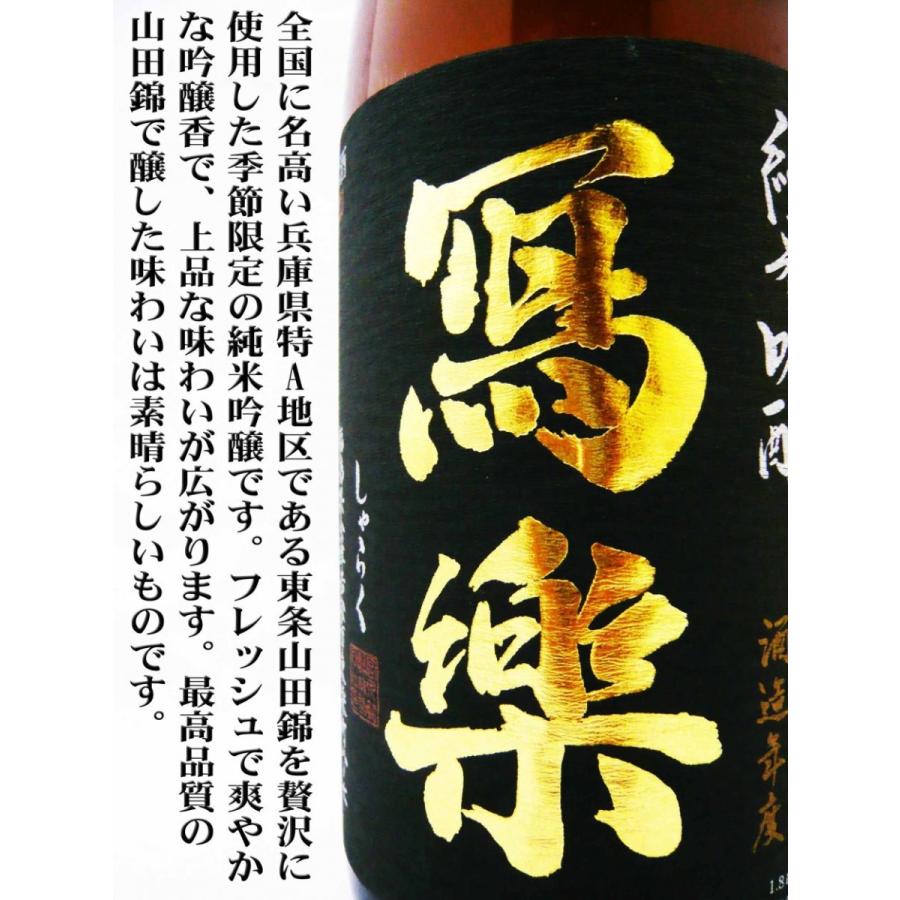 全国に名高い兵庫県特A地区である東条山田錦を贅沢に
使用した季節限定の純米吟醸です。フレッシュで爽やか
な吟醸香で、上品な味わいが広がります。最高品質の
山田錦で醸した味わいは素晴らしいものです。
純米吟醸
酒造年度
寫樂
しゃらく